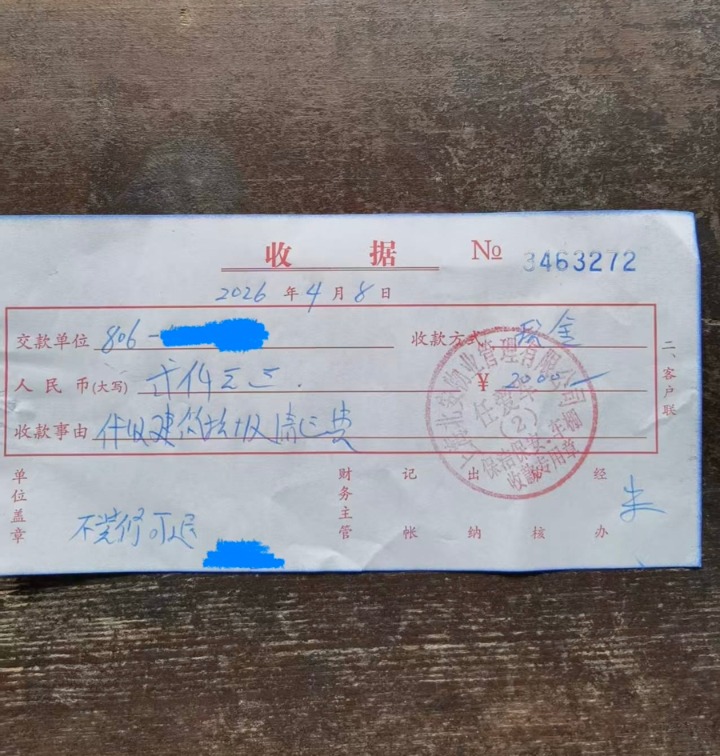 收据 № 3463272
2026年4月8日
交款单位 806-
收款方式 现金
人民币(大写) 贰仟元正.
¥ 2000.—
收款事由 代收建筑垃圾清运费
二、客户联
上海北安物业管理有限公司
任爱华
(2)
保洁保安、车棚
收款专用章
单位盖章
财务主管
记帐
出纳
核
经办 朱
不装修可退